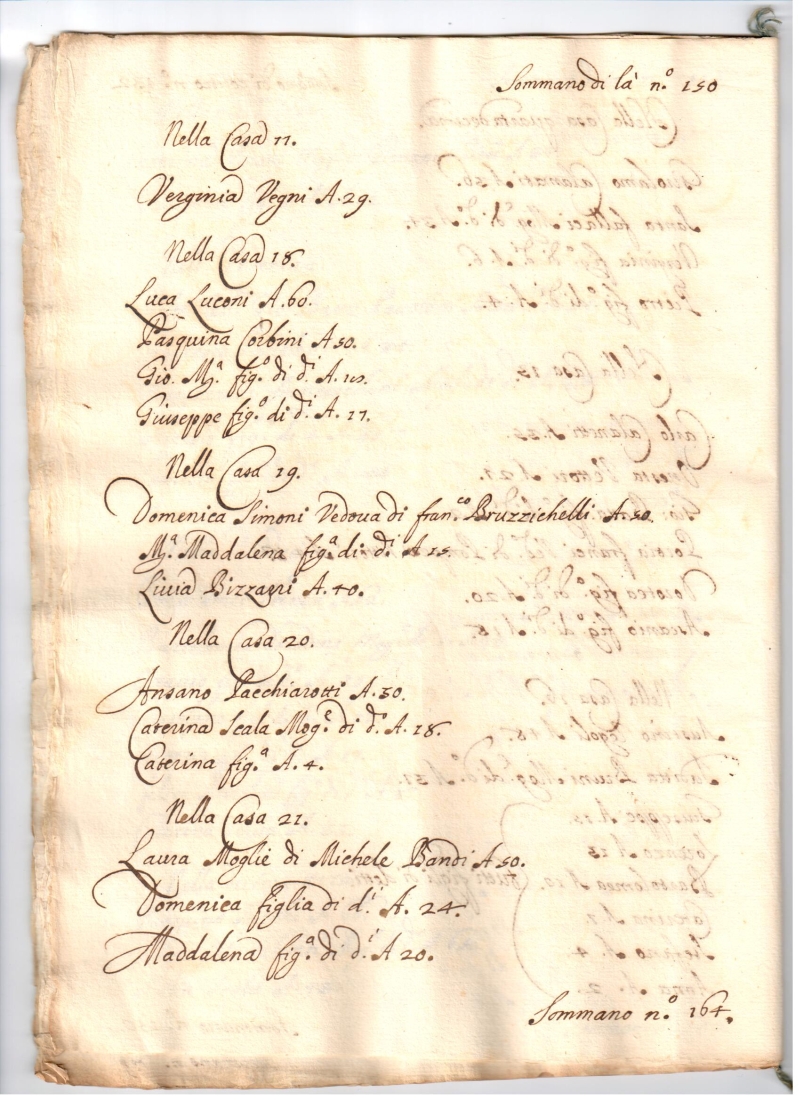 Sommano di là n.º 150
Nella Casa 17.
Verginia Vegni A. 29.
Nella Casa 18.
Luca Luconi A. 60.
Pasquina Corbini A 50.
Gio. M.ª fig.º di d.i A.
Giuseppe fig.º di d.i A. 17.
Nella Casa 19.
Domenica Simoni Vedova di fran.co Bruzzichelli A. 50.
M.ª Maddalena fig.ª di d.i A 15.
Livia Bizzarri A. 40.
Nella Casa 20.
Ansano Pacchiarotti A. 50.
Caterina Scala Mog.e di d.º A. 18.
Caterina fig.ª A. 4.
Nella Casa 21.
Laura Moglie di Michele Bandi A 50.
Domenica figlia di d.i A. 24.
Maddalena fig.ª di d.i A 20.
Sommano n.º 164.